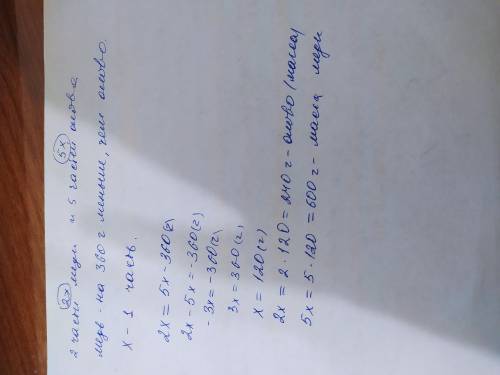 2 части меди и 5 частей олова
2x 5x
медь - на 360 г меньше, чем олово.
x - 1 часть.
2x = 5x - 360(г)
2x - 5x = -360(г)
- 3x = -360(г)
3x = 360(г)
x = 120(г)
2x = 2 · 120 = 240 г - олово (масса)
5x = 5 · 120 = 600 г - масса меди